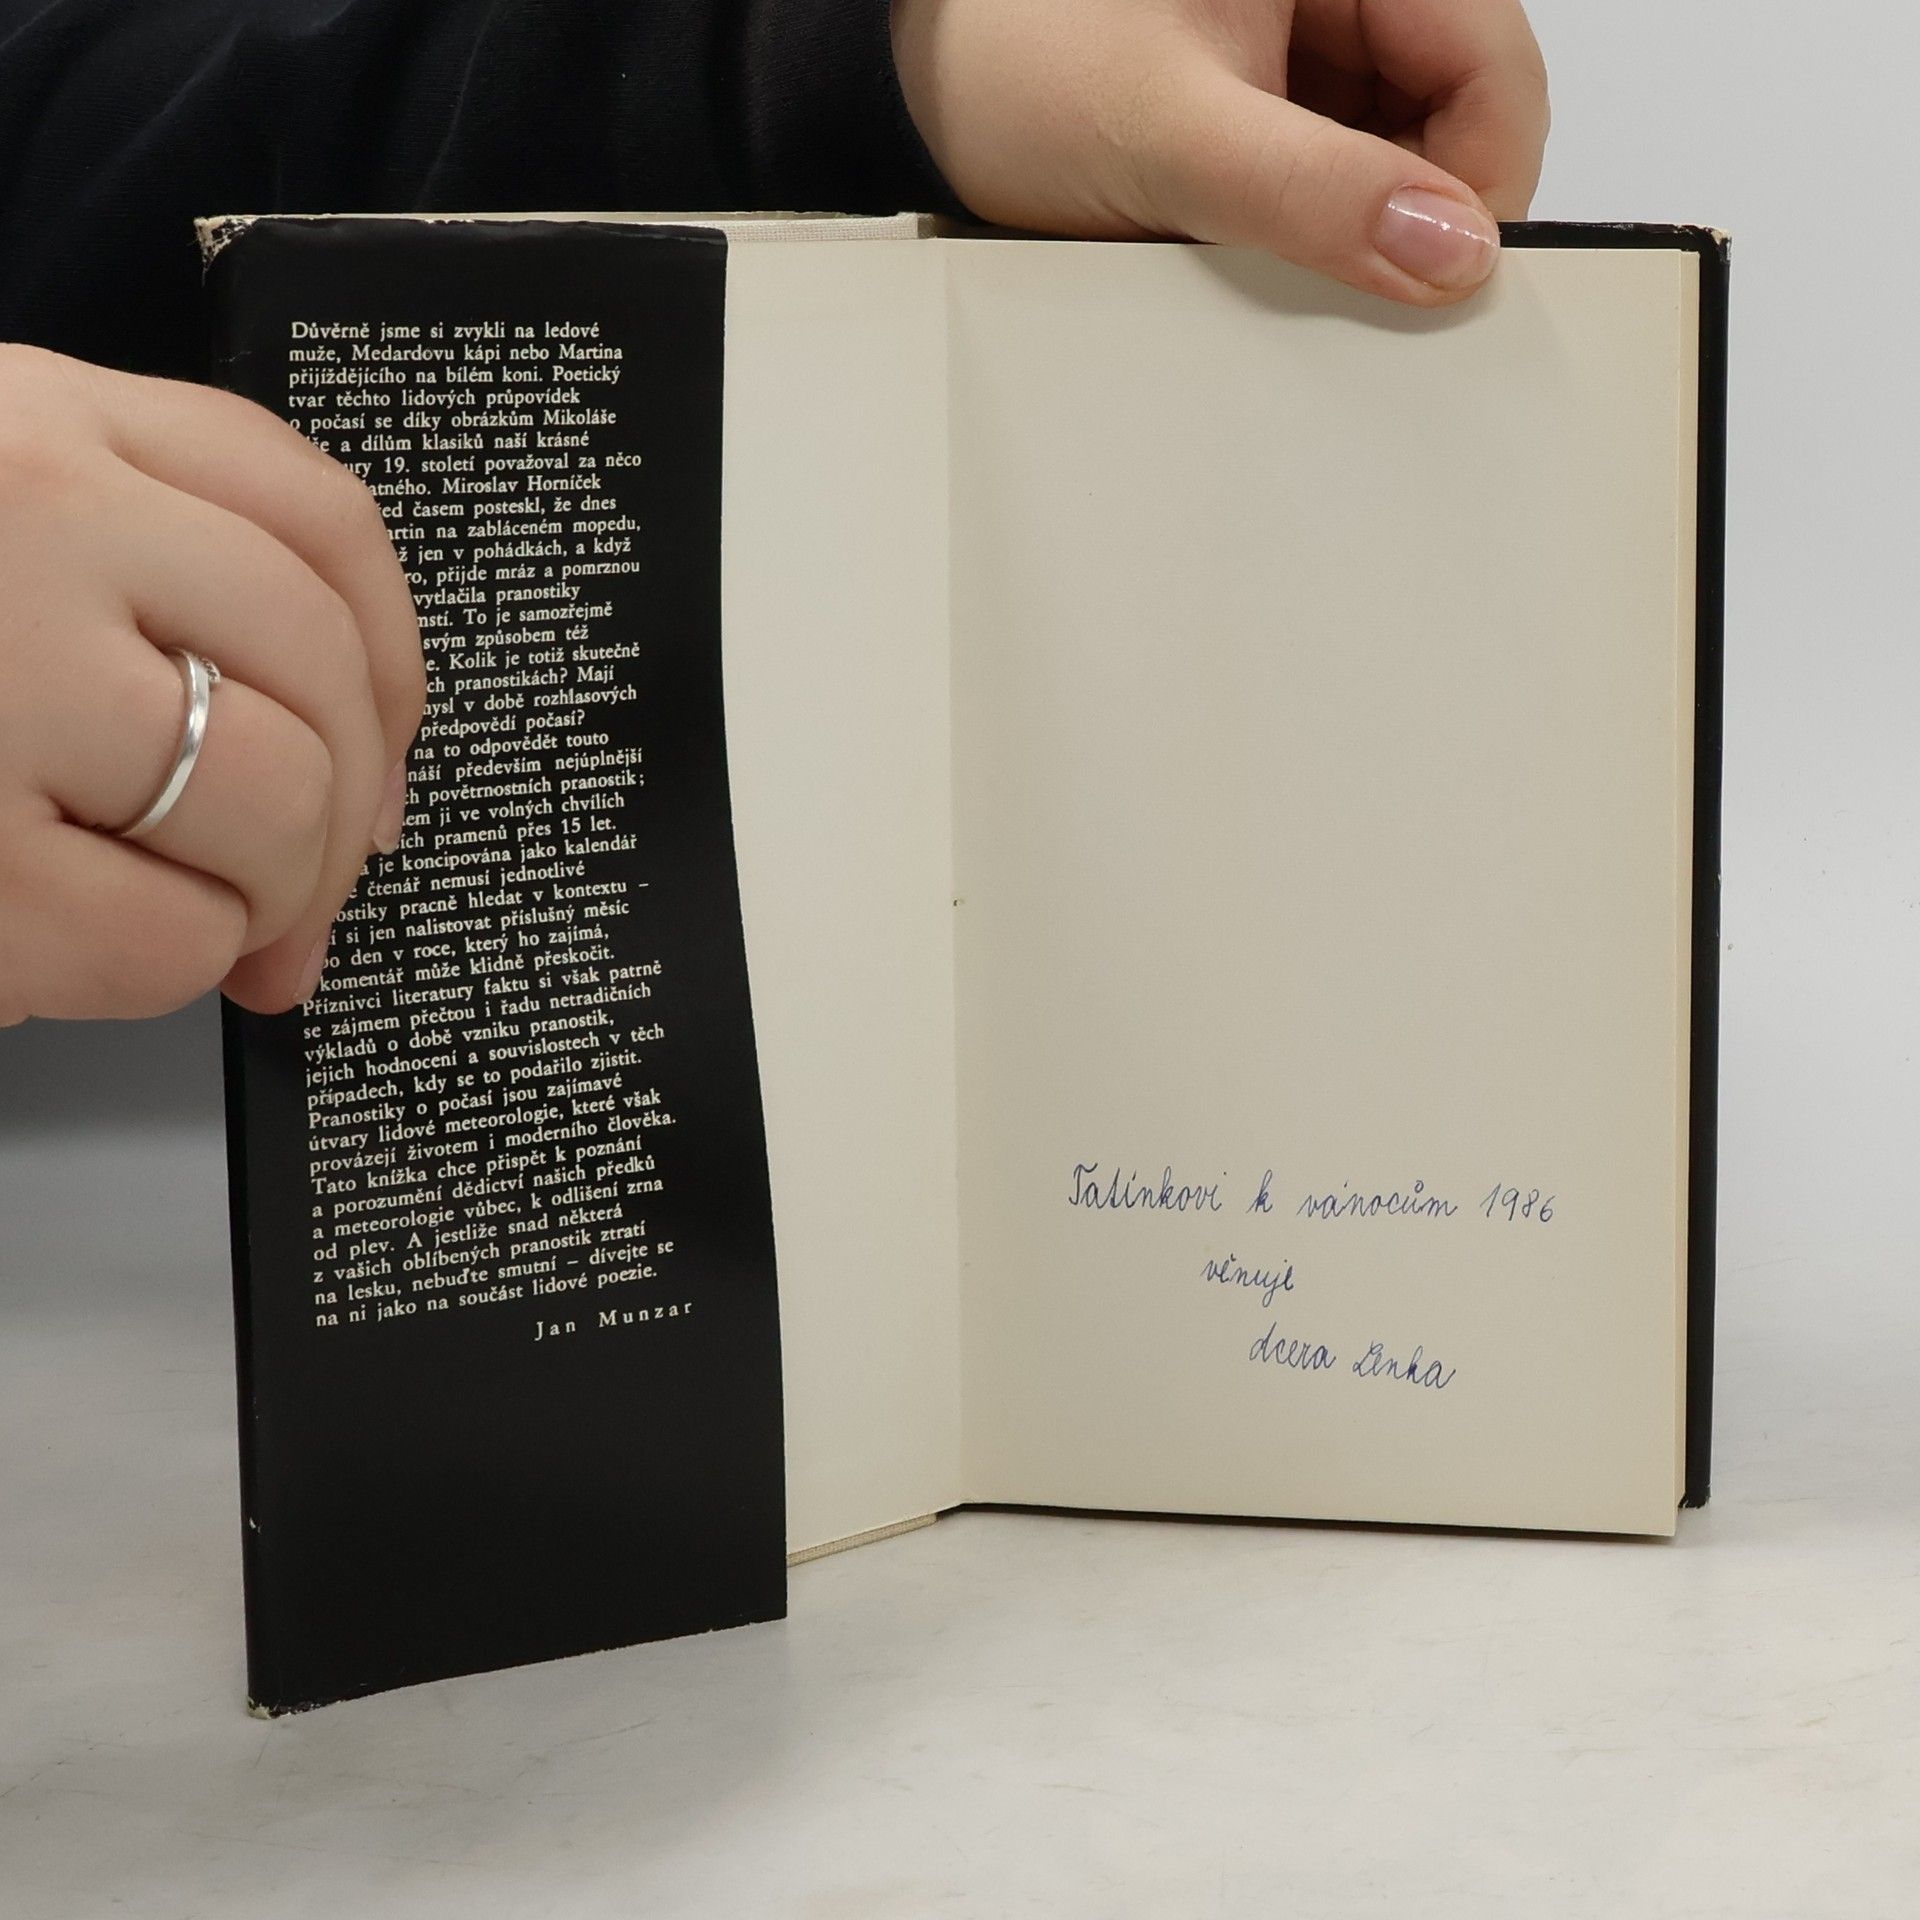 Důvěrně jsme si zvykli na ledové
muže, Medardovu kápi nebo Martina
přijíždějícího na bílém koni. Poetický
tvar těchto lidových průpovídek
o počasí se díky obrázkům Mikoláše
a dílům klasiků naší krásné
19. století považoval za něco
Miroslav Horníček
časem posteskl, že dnes
na zabláceném mopedu,
jen v pohádkách, a když
přijde mráz a pomrznou
vytlačila pranostiky
To je samozřejmě
svým způsobem též
Kolik je totiž skutečně
pranostikách? Mají
v době rozhlasových
předpovědí počasí?
na to odpovědět touto
především nejúplnější
povětrnostních pranostik;
ji ve volných chvílích
pramenů přes 15 let.
je koncipována jako kalendář
čtenář nemusí jednotlivé
pracně hledat v kontextu –
si jen nalistovat příslušný měsíc
den v roce, který ho zajímá,
komentář může klidně přeskočit.
Příznivci literatury faktu si však patrně
se zájmem přečtou i řadu netradičních
výkladů o době vzniku pranostik,
jejich hodnocení a souvislostech v těch
případech, kdy se to podařilo zjistit.
Pranostiky o počasí jsou zajímavé
útvary lidové meteorologie, které však
provázejí životem i moderního člověka.
Tato knížka chce přispět k poznání
a porozumění dědictví našich předků
a meteorologie vůbec, k odlišení zrna
od plev. A jestliže snad některá
z vašich oblíbených pranostik ztratí
na lesku, nebuďte smutní – dívejte se
na ni jako na součást lidové poezie.
Jan Munzar
Tatínkovi k vánocům 1986
věnuje
dcera Lenka